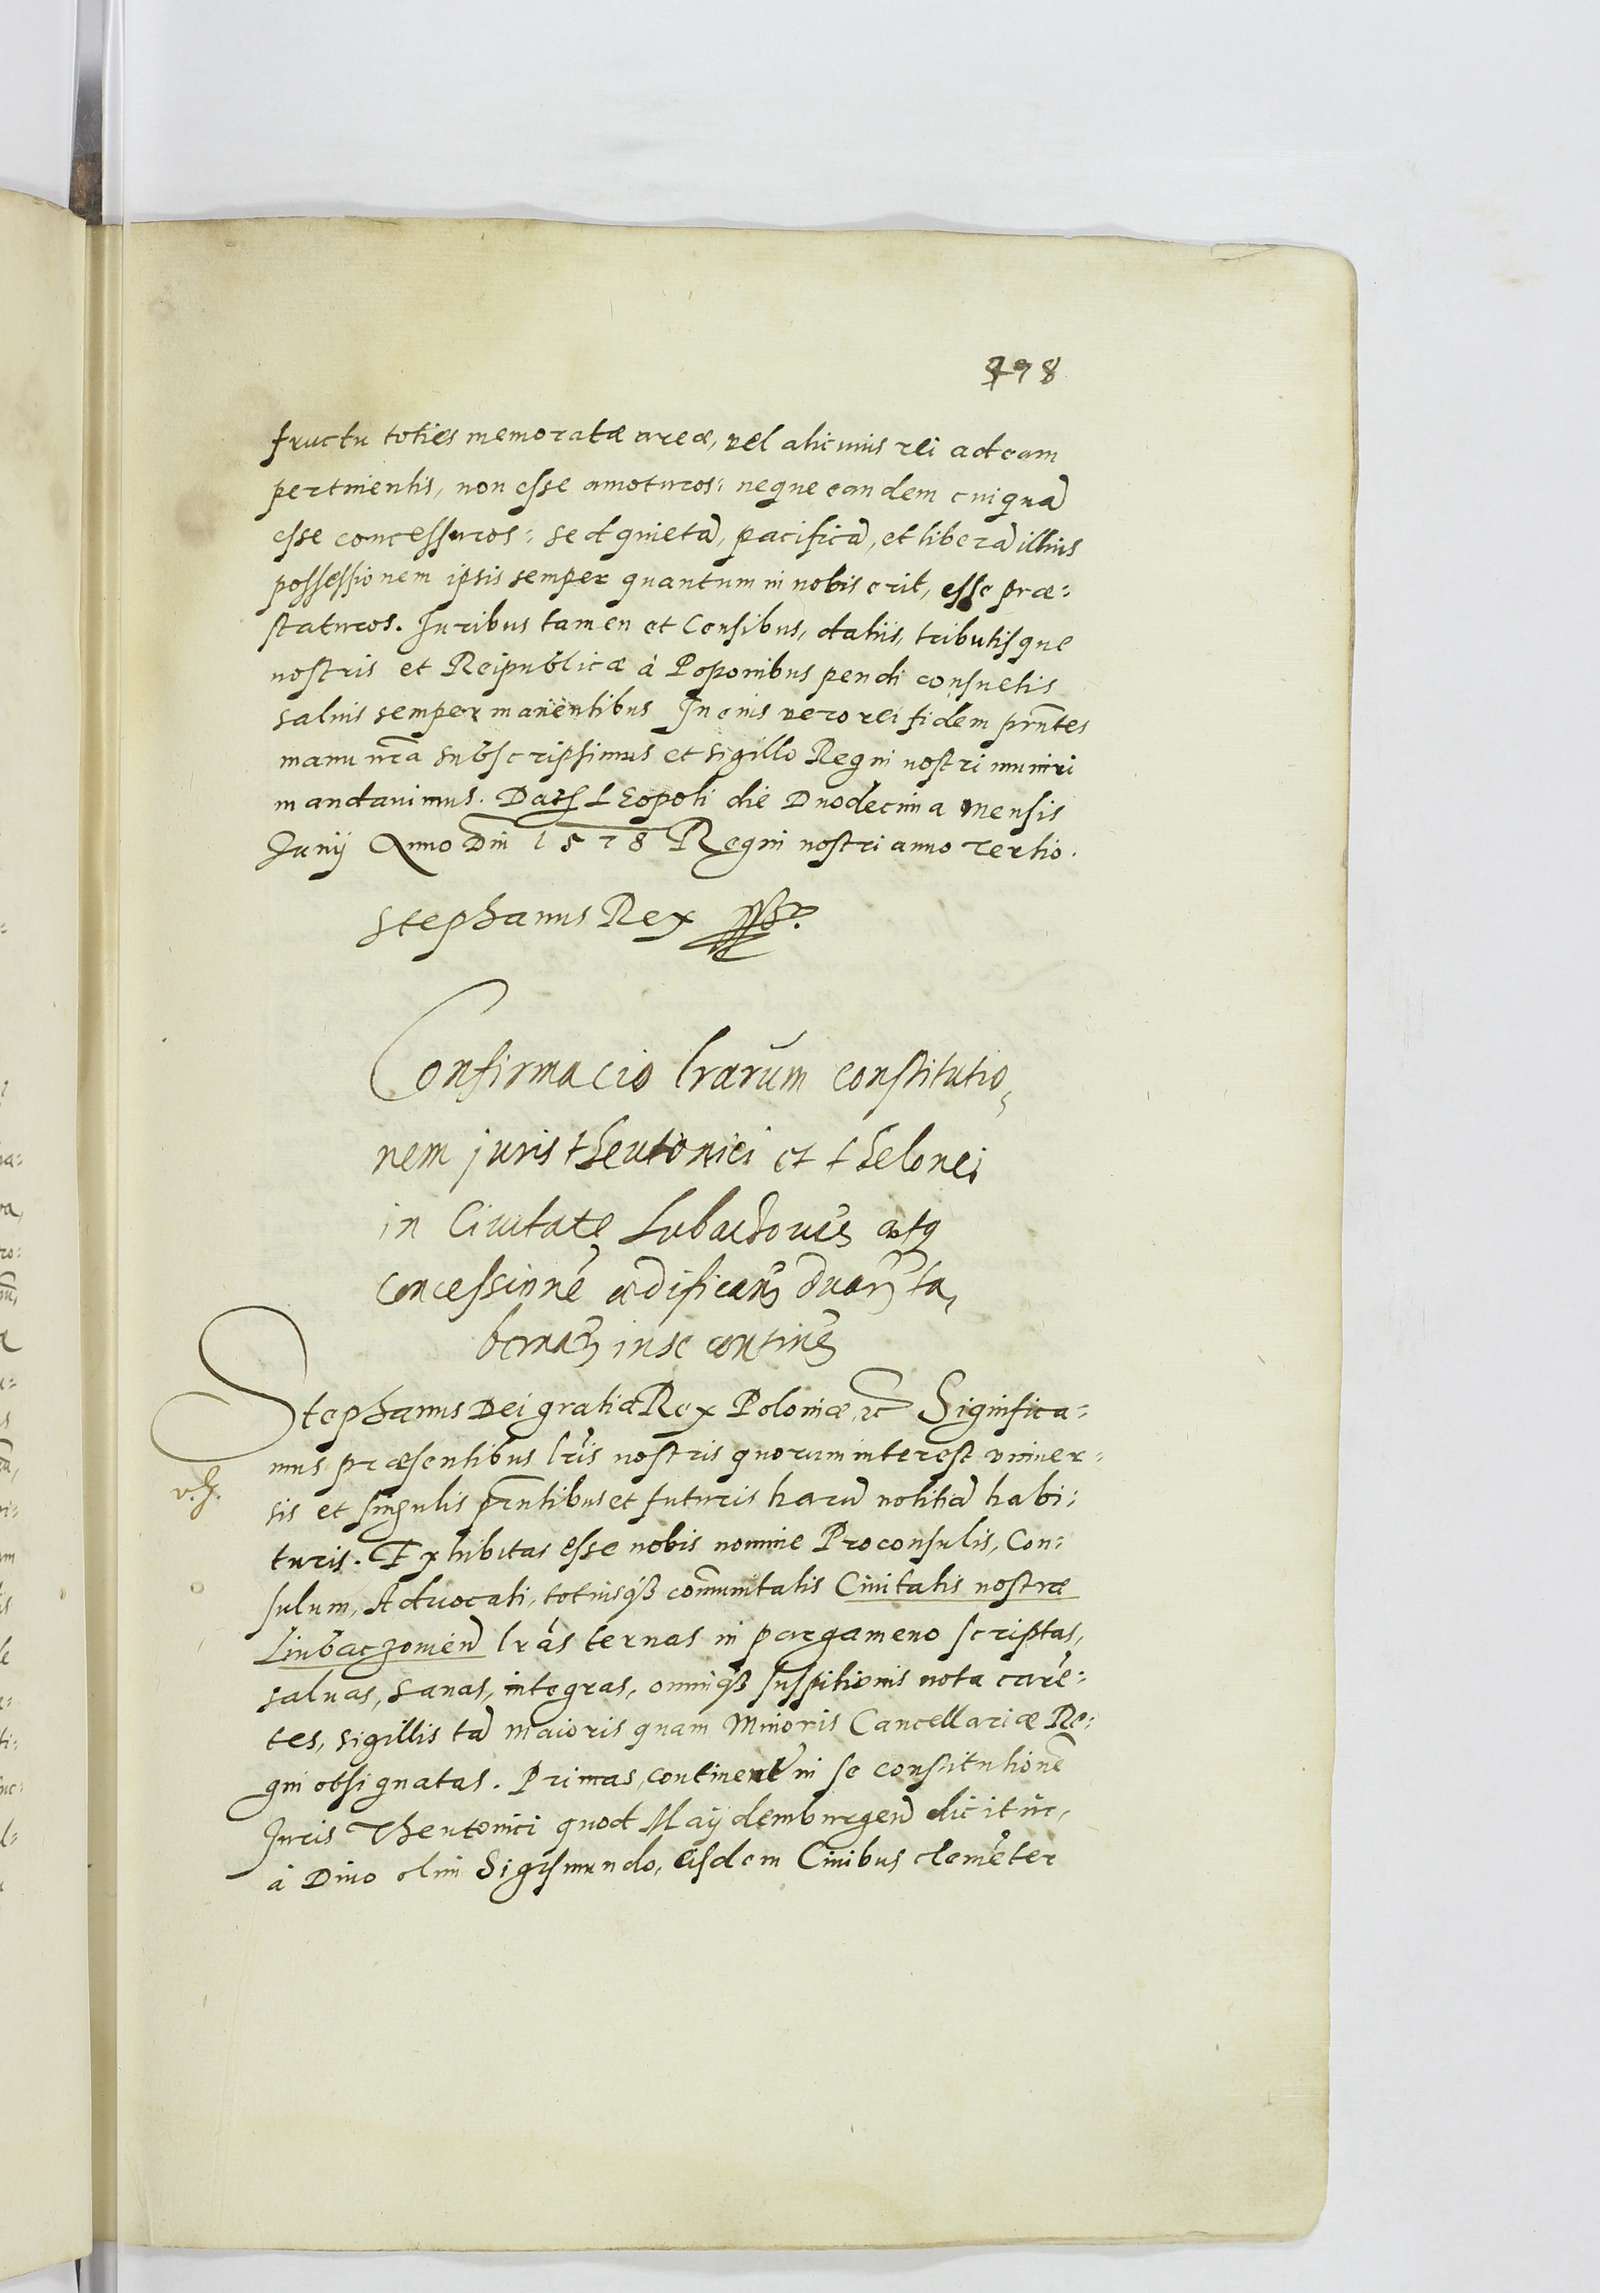 398
fructu toties memoratæ areæ, vel alicuius rei ad eam
pertinentis, non esse amoturos: neque eandem cuiquã
esse concessuros: sed quietã, pacificã, et liberã illius
possessionem ipsis semper quantum in nobis erit, esse præ:
staturos. Juribus tamen et Censibus, datiis, tributisque
nostris et Reipublicæ à Poponibus pendi consuetis
salvis semper manẽntibus In cuius vero rei fidem prñtes
manu nrã subscripsimus et sigillo Regni nostri muniri
mandavimus. Datȝ LEopoli die Duodecima mensis
Junij Anno Dni 1578 Regni nostri anno Tertio.
Stephanus Rex
Confirmacio lrarum constitutio,
nem juris theutonici et thelonei
in Civitate Lubaczovieñ atq
concessionẽ ædificanȝ duarȝ ta,
bernarȝ in se continẽ
Stephanus Dei gratia Rex Poloniæ, etc Significa:
mus præsentibus lris nostris quorum interest univer:
v. J.
sis et singulis prñtibus et futuris harũ notitiã habi:
turis. Exhibitas esse nobis nomine Proconsulis, Con:
sulum, Advocati, totiusqȝ com̃unitatis Civitatis nostræ
Liubaczovieñ lrás ternas in pargameno scriptas,
salvas, sanas, integras, omniqȝ suspitionis nota carẽ:
tes, sigillis tã maioris quam Minoris Cancellariæ Re:
gni obsignatas. Primas, continent in se constitutionẽ
Juris Theutonici quod Maydemburgeñ dicitur,
à Divo olim Sigismundo, eisdem Civibus clemẽter